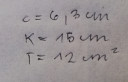 c = 6,3 cm
K = 15 cm
T = 12 cm²